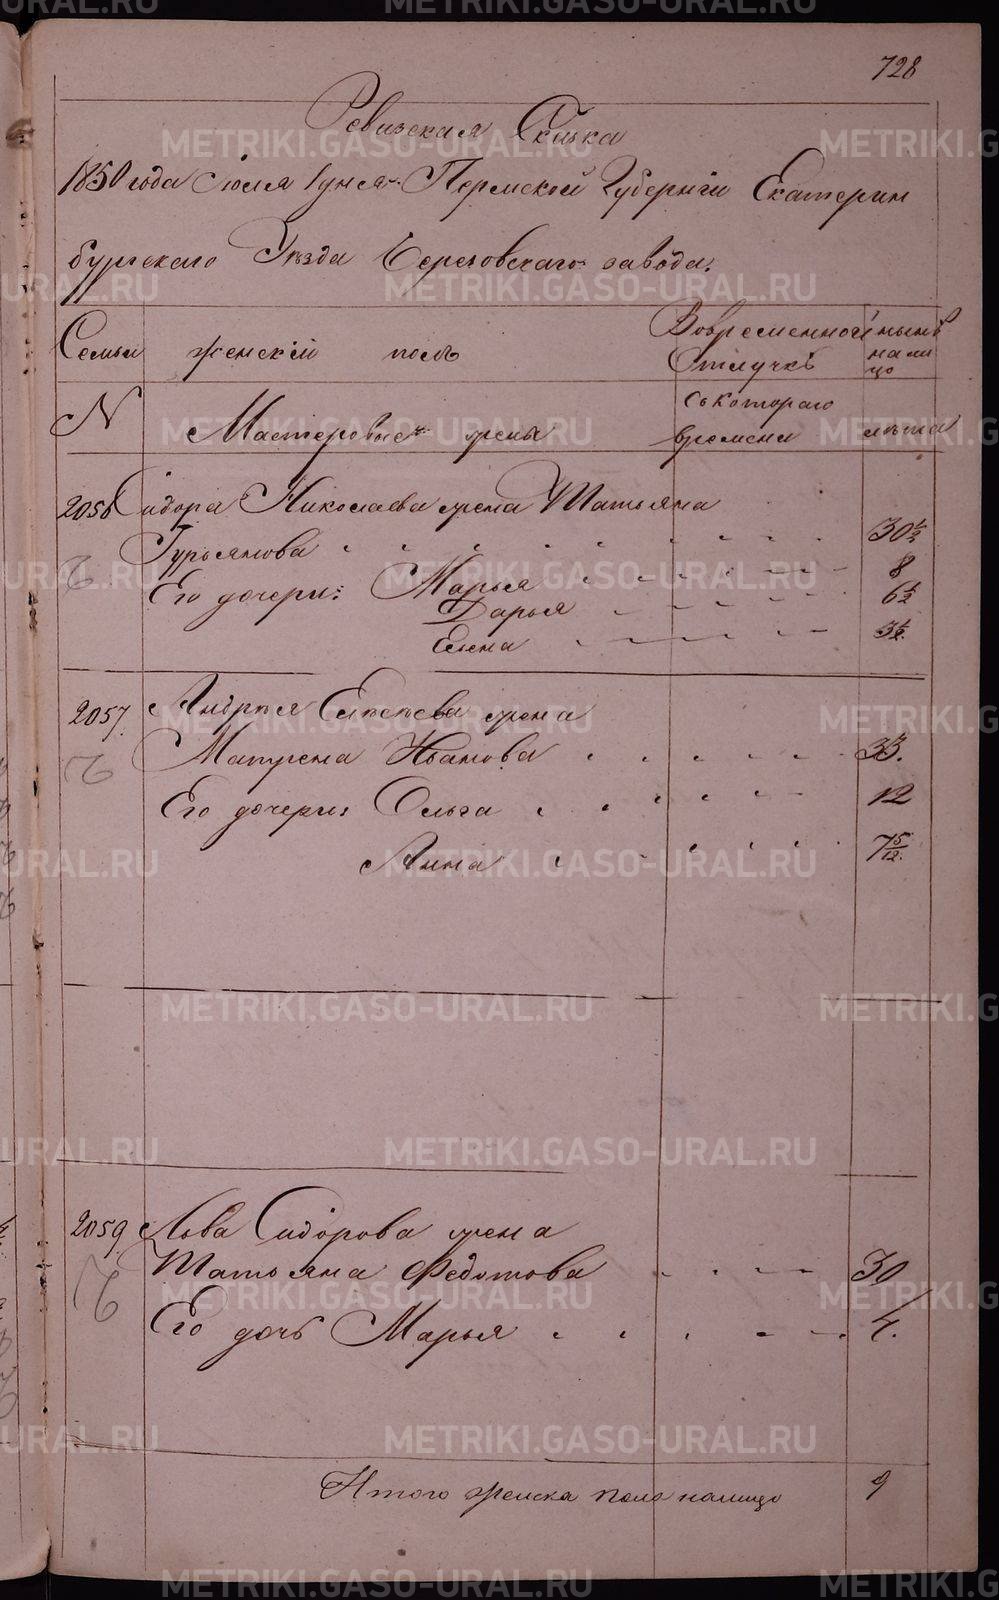 728
Ревизская Сказка
1850 года Июля 1 дня Пермской Губернiи Екатерин
бургскаго Уѣзда Березовскаго завода.
Семьи женскiй полъ Вовременной Отлучкѣ нынѣ на ли цо
N Мастеровые жены съкотораго времени лѣта
2056 Сидора Николаева жена Татьяна
Гурьянова 30½
Его дочери: Марья 8
Дарья 6½
Елена 3½.
2057. Андрея Елисѣева жена
Матрена Иванова 33.
Его дочери: Ольга 12
Анна 7 5/12.
2059 Льва Сидорова жена
Татьяна Федотова 30
Его дочь Марья 4.
Итого женска пола налицо 9
METRIKI.GASO-URAL.RU